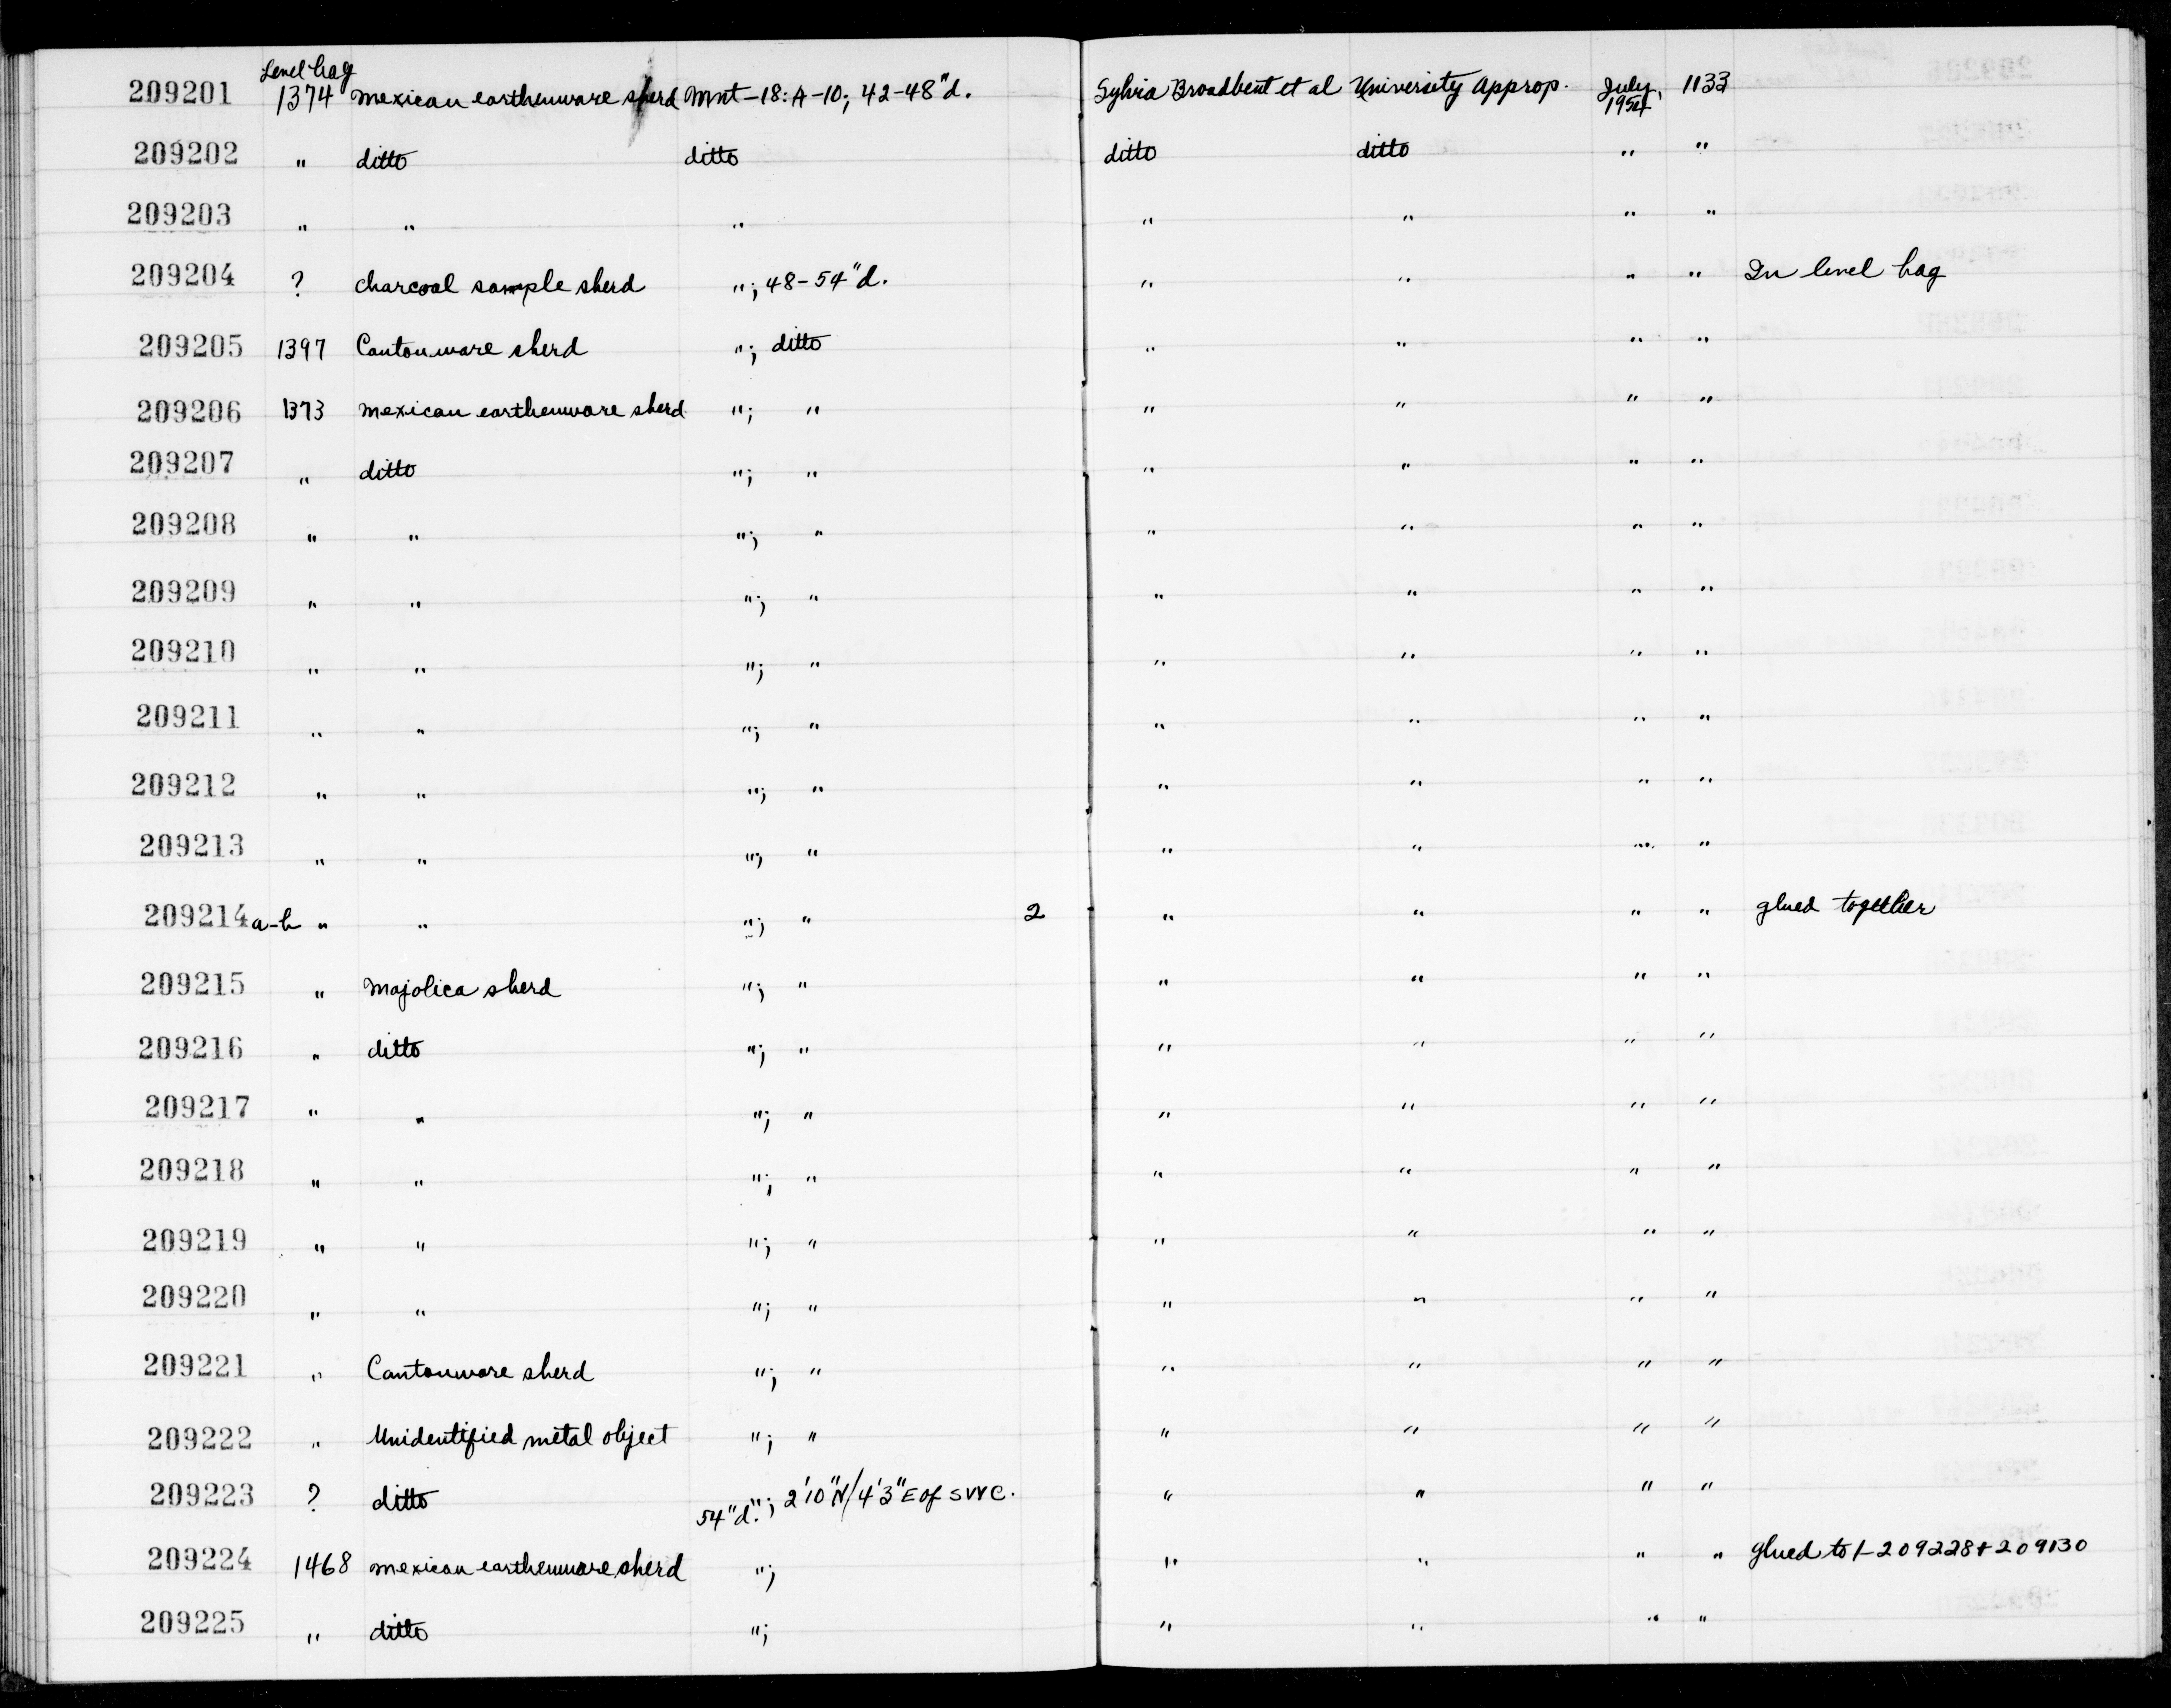 Level bag
209201 1374 Mexican earthenware sherd Mnt-18: A-10; 42-48"d. Sylvia Broadbent et al University Approp. July, 1954 1133
209202 " ditto ditto ditto ditto " "
209203 " " " " " " "
209204 ? charcoal sample sherd "; 48-54"d. " " " " In level bag
209205 1397 Cantonware sherd "; ditto " " " "
209206 1373 Mexican earthenware sherd "; " " " " "
209207 " ditto "; " " " " "
209208 " " "; " " " " "
209209 " " "; " " " " "
209210 " " "; " " " " "
209211 " " "; " " " " "
209212 " " "; " " " " "
209213 " " "; " " " " "
209214 a-b " " "; " 2 " " " " glued together
209215 " Majolica sherd "; " " " " "
209216 " ditto "; " " " " "
209217 " " "; " " " " "
209218 " " "; " " " " "
209219 " " "; " " " " "
209220 " " "; " " " " "
209221 " Cantonware sherd "; " " " " "
209222 " Unidentified metal object "; " " " " "
209223 ? ditto "; 2'10"N/4'3"E of SWC. 54"d. " " " "
209224 1468 Mexican earthenware sherd "; " " " " glued to 1-209228+209130
209225 " ditto "; " " " "